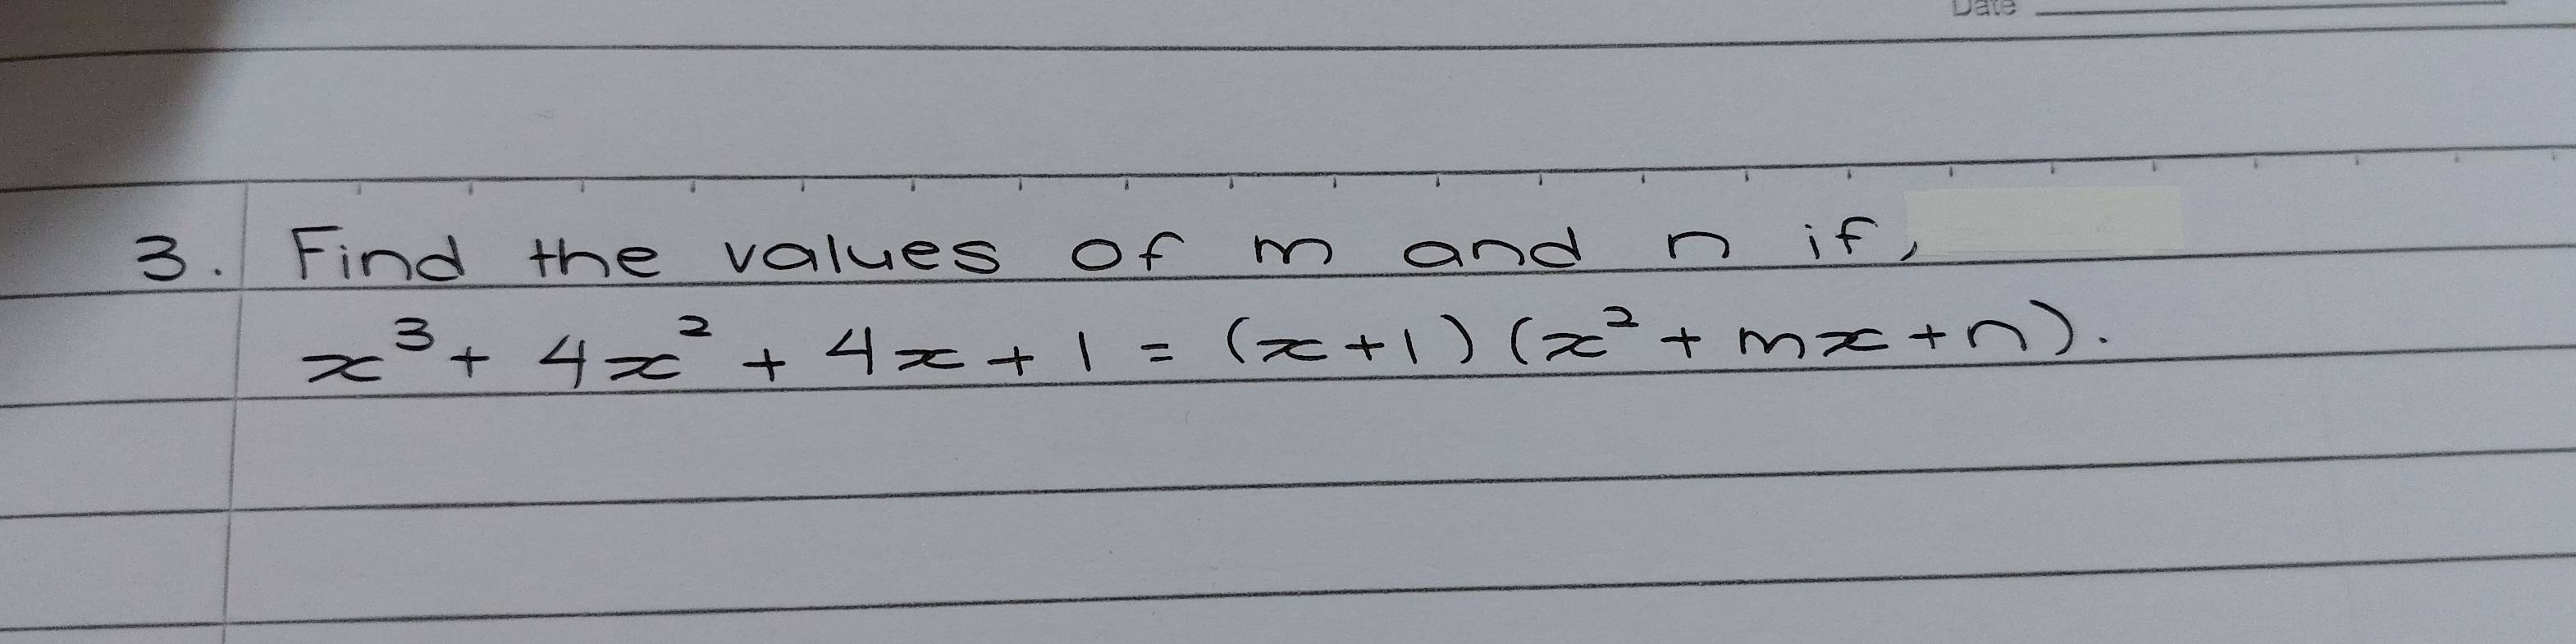 Date
3. Find the values of m and n if,
x³ + 4x² + 4x + 1 = (x+1) (x² + mx + n).